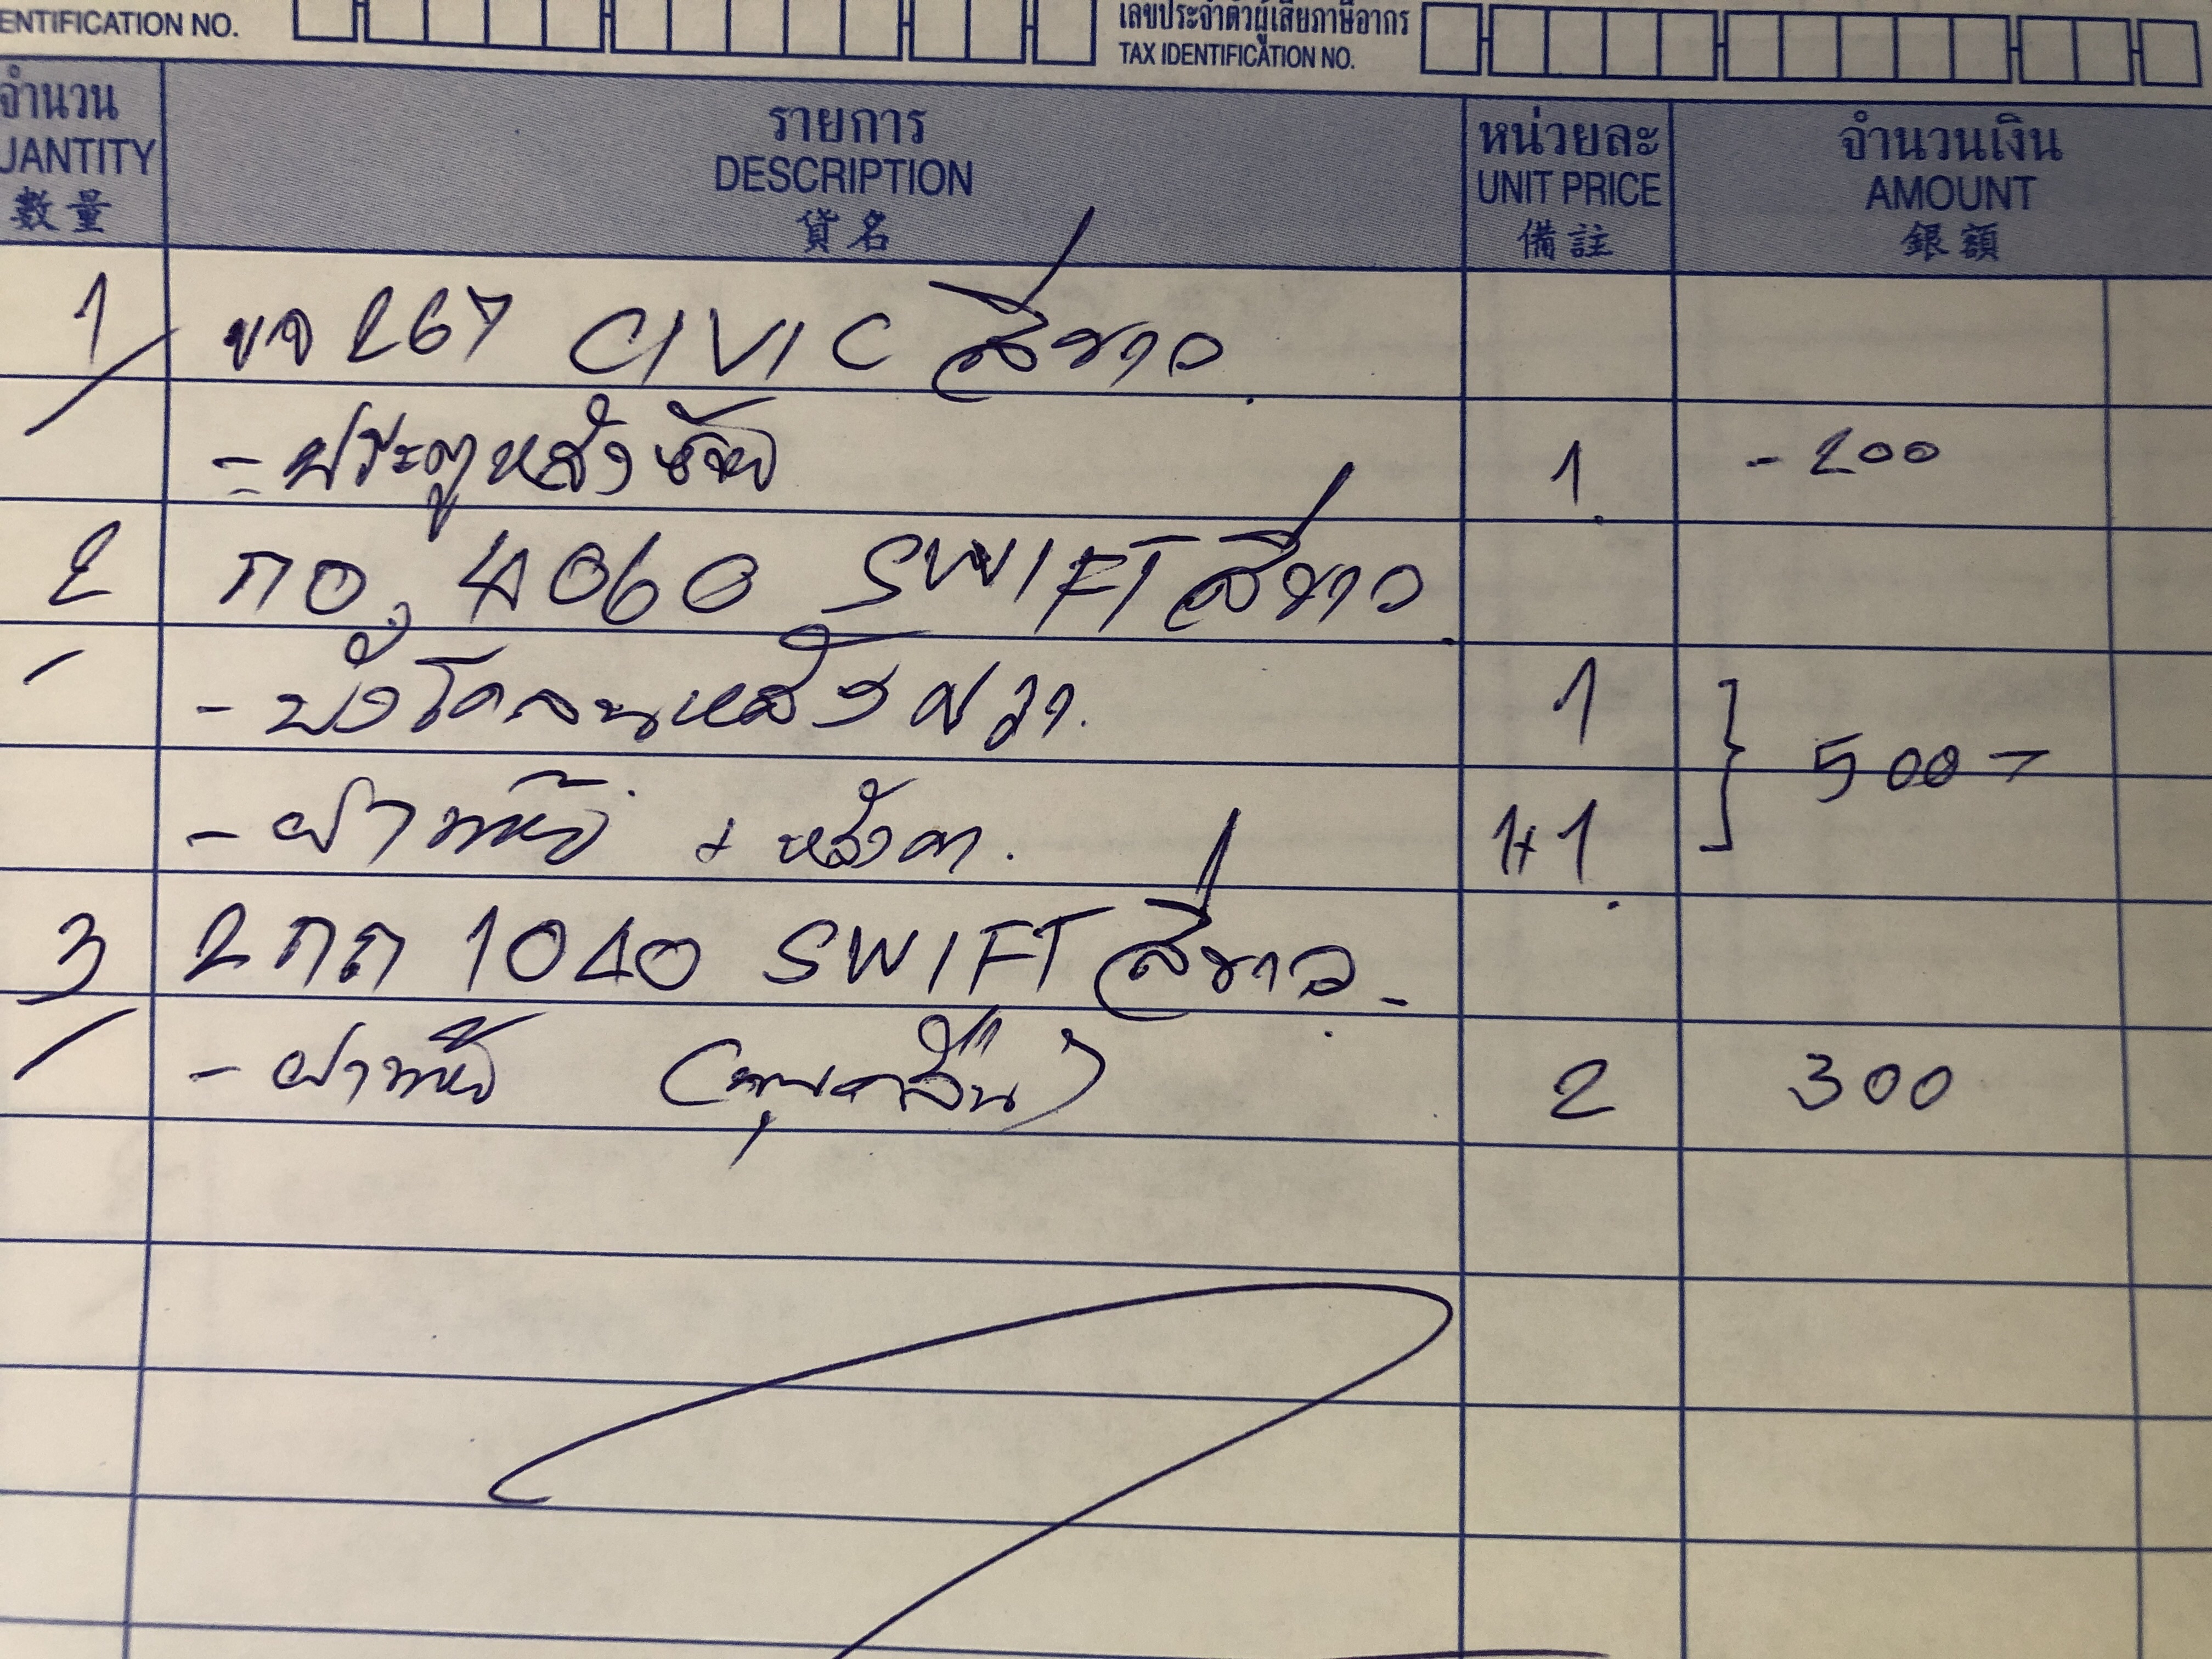 ENTIFICATION NO.
เลขประจำตัวผู้เสียภาษีอากร
TAX IDENTIFICATION NO.
จำนวน รายการ หน่วยละ จำนวนเงิน
UANTITY DESCRIPTION UNIT PRICE AMOUNT
數量 貨名 備註 銀額
1 ขจ 267 CIVIC สีขาว
- ประตูหลังซ้าย 1 - 200
2 กอ 4060 SWIFT สีขาว
- บังโคลนหลัง ขวา 1
500 -
- ฝาท้าย + หลังคา 1+1
3 2กถ 1040 SWIFT สีขาว -
- ฝาท้าย 2 300